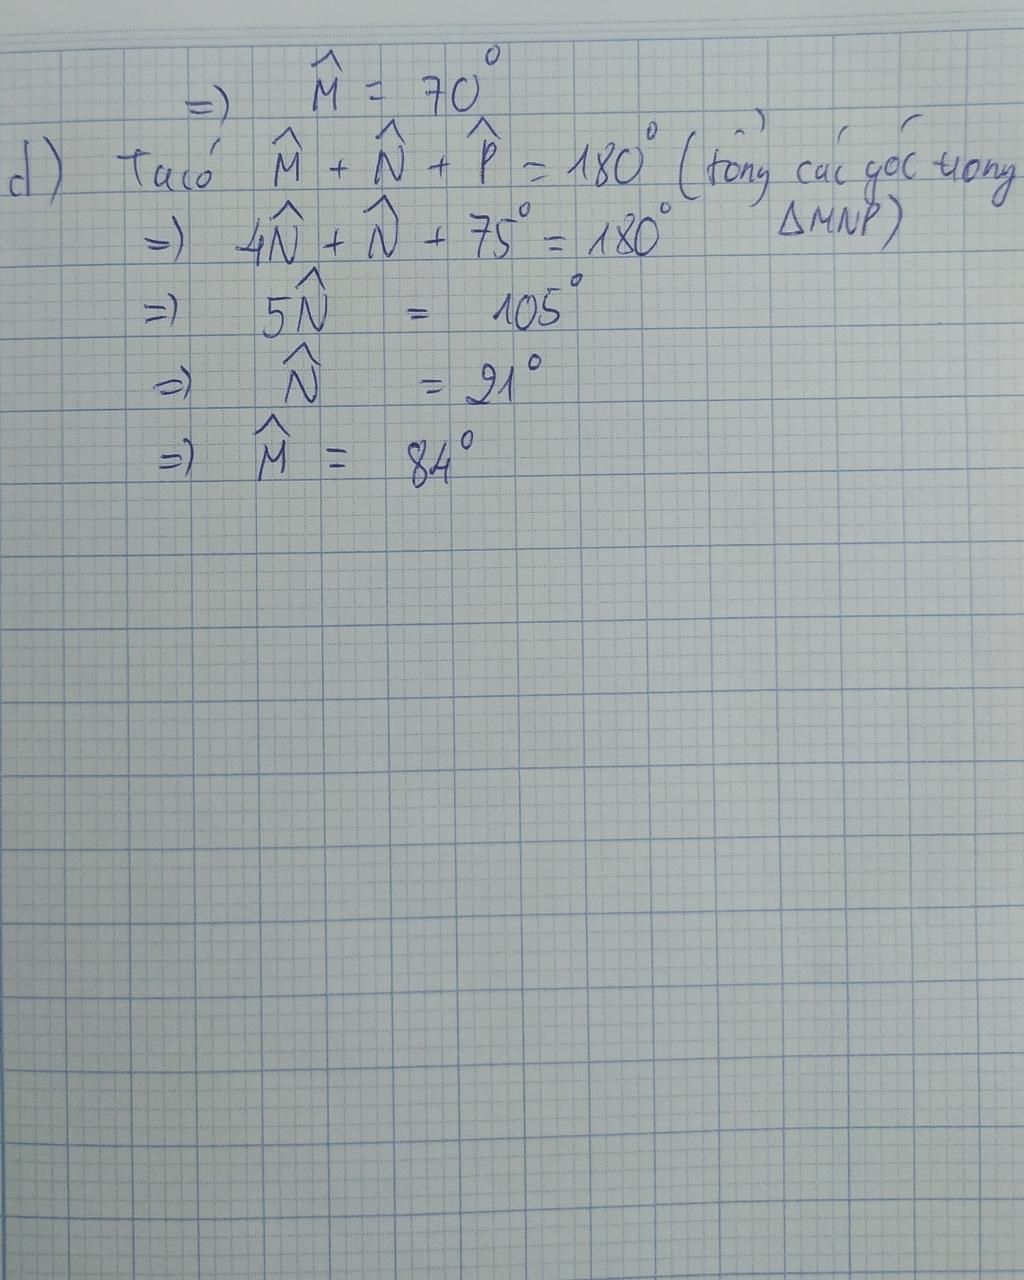 =) M̂ = 70°
d) Ta có M̂ + N̂ + P̂ = 180° (tổng các góc trong ΔMNP)
=) 4N̂ + N̂ + 75° = 180°
=) 5N̂ = 105°
=) N̂ = 21°
=) M̂ = 84°